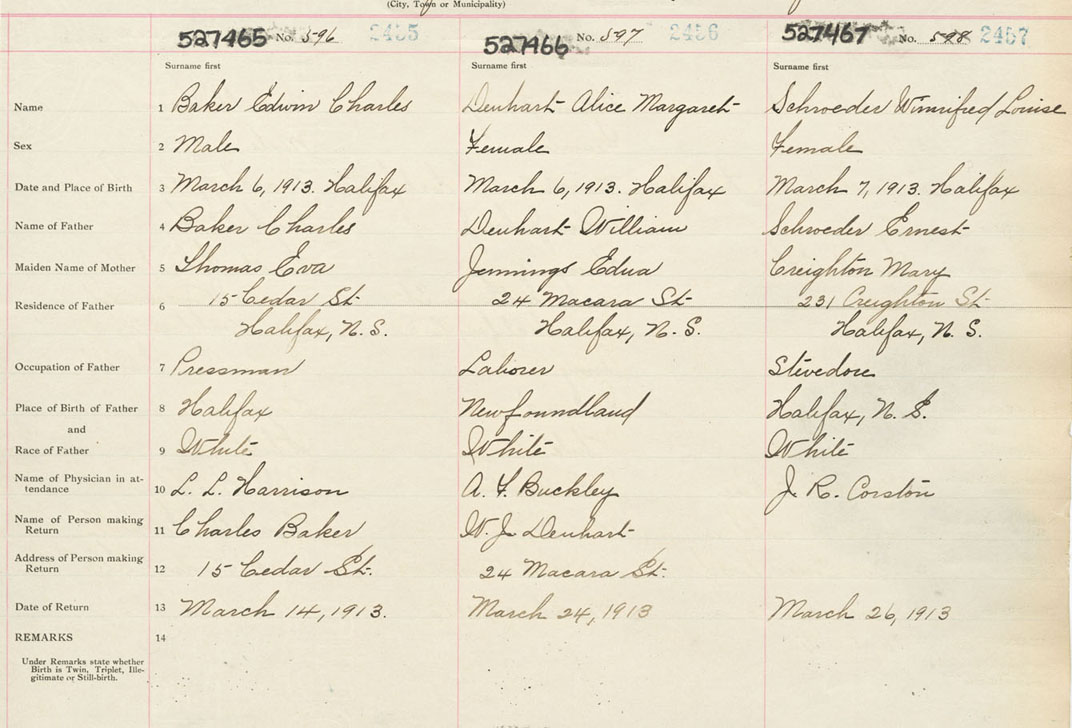 (City, Town or Municipality)
527465 No. 596 2455 527466 No. 597 2456 527467 No. 598 2457
Surname first Surname first Surname first
Name 1 Baker Edwin Charles Denhart Alice Margaret Schroeder Winnifred Louise
Sex 2 Male Female Female
Date and Place of Birth 3 March 6, 1913. Halifax March 6, 1913. Halifax March 7, 1913. Halifax
Name of Father 4 Baker Charles Denhart William Schroeder Ernest
Maiden Name of Mother 5 Thomas Eva Jennings Edna Creighton Mary
Residence of Father 6 15 Cedar St. 24 Macara St. 231 Creighton St.
Halifax, N. S. Halifax, N. S. Halifax, N. S.
Occupation of Father 7 Pressman Laborer Stevedore
Place of Birth of Father 8 Halifax Newfoundland Halifax, N. S.
and
Race of Father 9 White White White
Name of Physician in at-
tendance 10 L. L. Harrison A. F. Buckley J. R. Corston
Name of Person making
Return 11 Charles Baker W. J. Denhart
Address of Person making
Return 12 15 Cedar St. 24 Macara St.
Date of Return 13 March 14, 1913. March 24, 1913 March 26, 1913
REMARKS 14
Under Remarks state whether
Birth is Twin, Triplet, Ille-
gitimate or Still-birth.